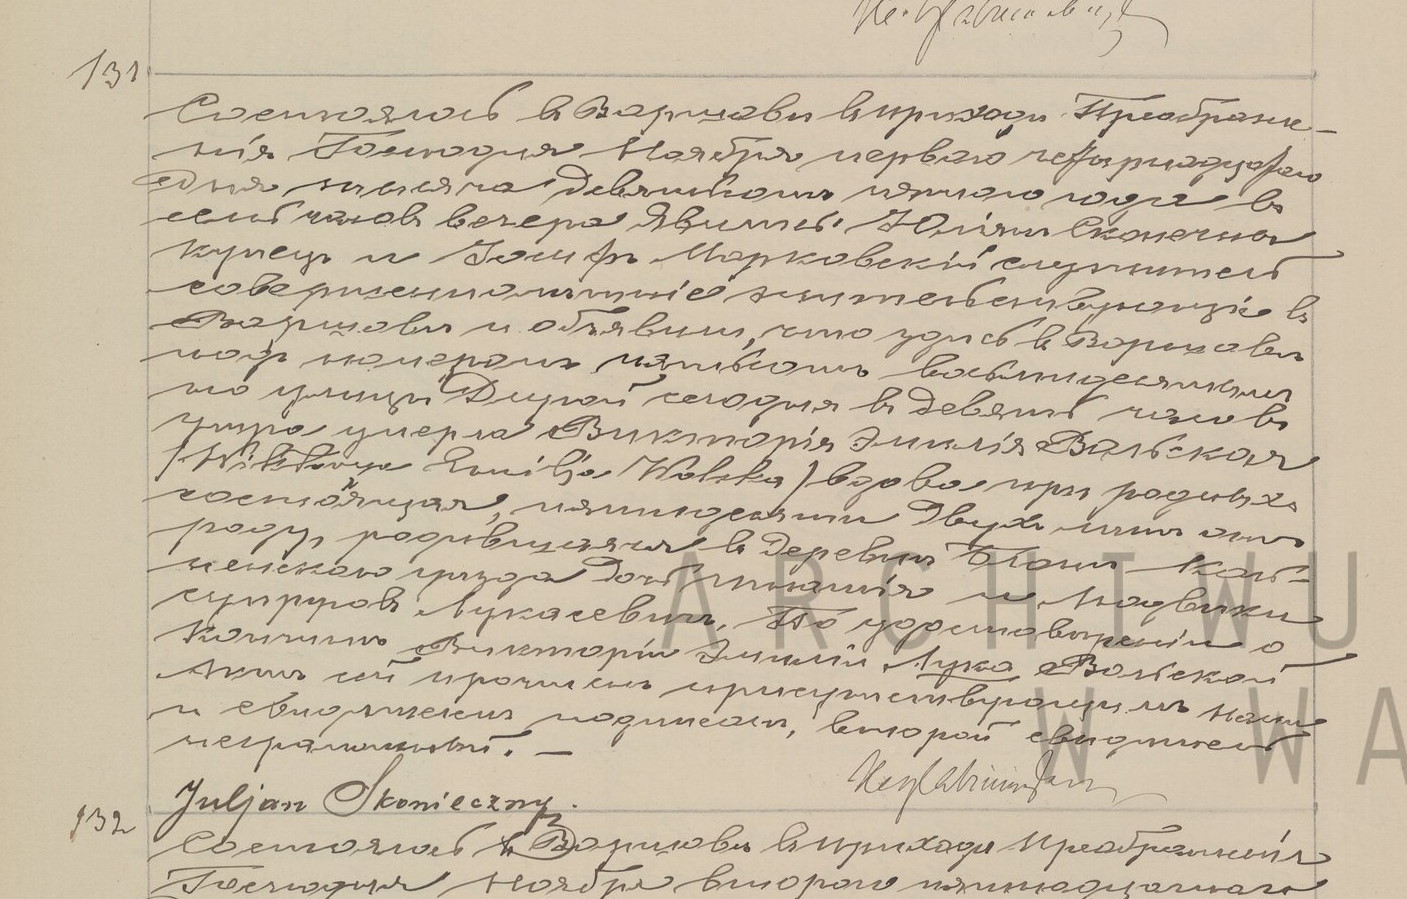 131
Состоялось въ Варшавѣ въ приходѣ Преображе-
нія Господня Ноября перваго четырнадцатаго
дня тысяча девятьсотъ пятаго года въ
семь часовъ вечера Явились Юліянъ Сконечны
купецъ и Іосифъ Марковскій служитель
совершеннолѣтніе жительствующіе въ
Варшавѣ и объявили, что здѣсь въ Варшавѣ
подъ номеромъ пятьсотъ восьмидесятымъ
по улицѣ Долгой сегодня въ девять часовъ
утра умерла Викторія Эмилія Вольская
/Wiktorya Emilja Wolska/ вдова при родныхъ
состоящая, пятидесяти двухъ лѣтъ отъ
роду, родившаяся въ деревнѣ
уѣзда дочь и
супруговъ Лукасевичъ. По удостовѣреніи о
кончинѣ Викторіи Эмиліи Вольской
Актъ сей прочтенъ присутствующимъ нами
и свидѣтелемъ подписанъ, второй свидѣтель
неграмотный. —
Juljan Skonieczny.
132
Состоялось въ Варшавѣ въ приходѣ Преображенія
Господня Ноября втораго пятнадцатаго
ARCHIWU
W WA